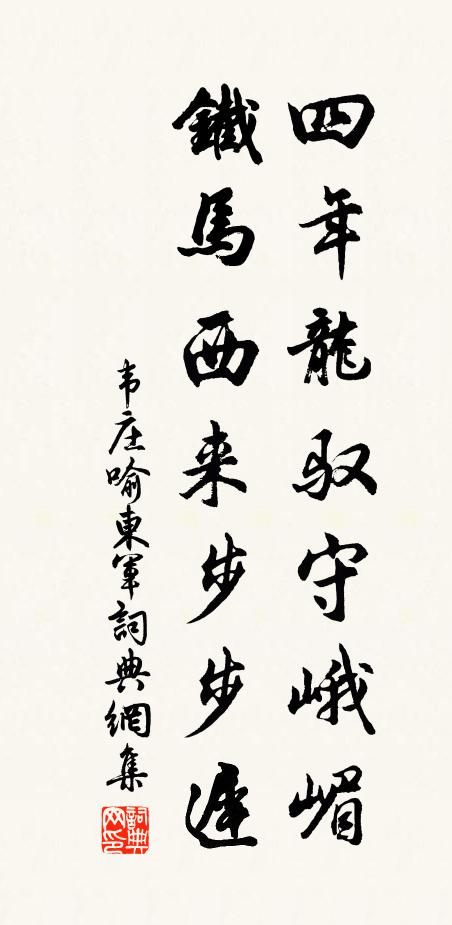 四年龍馭守峨嵋
鐵馬西来步步遲
韦庄喻東軍詞典網集
詞典网印